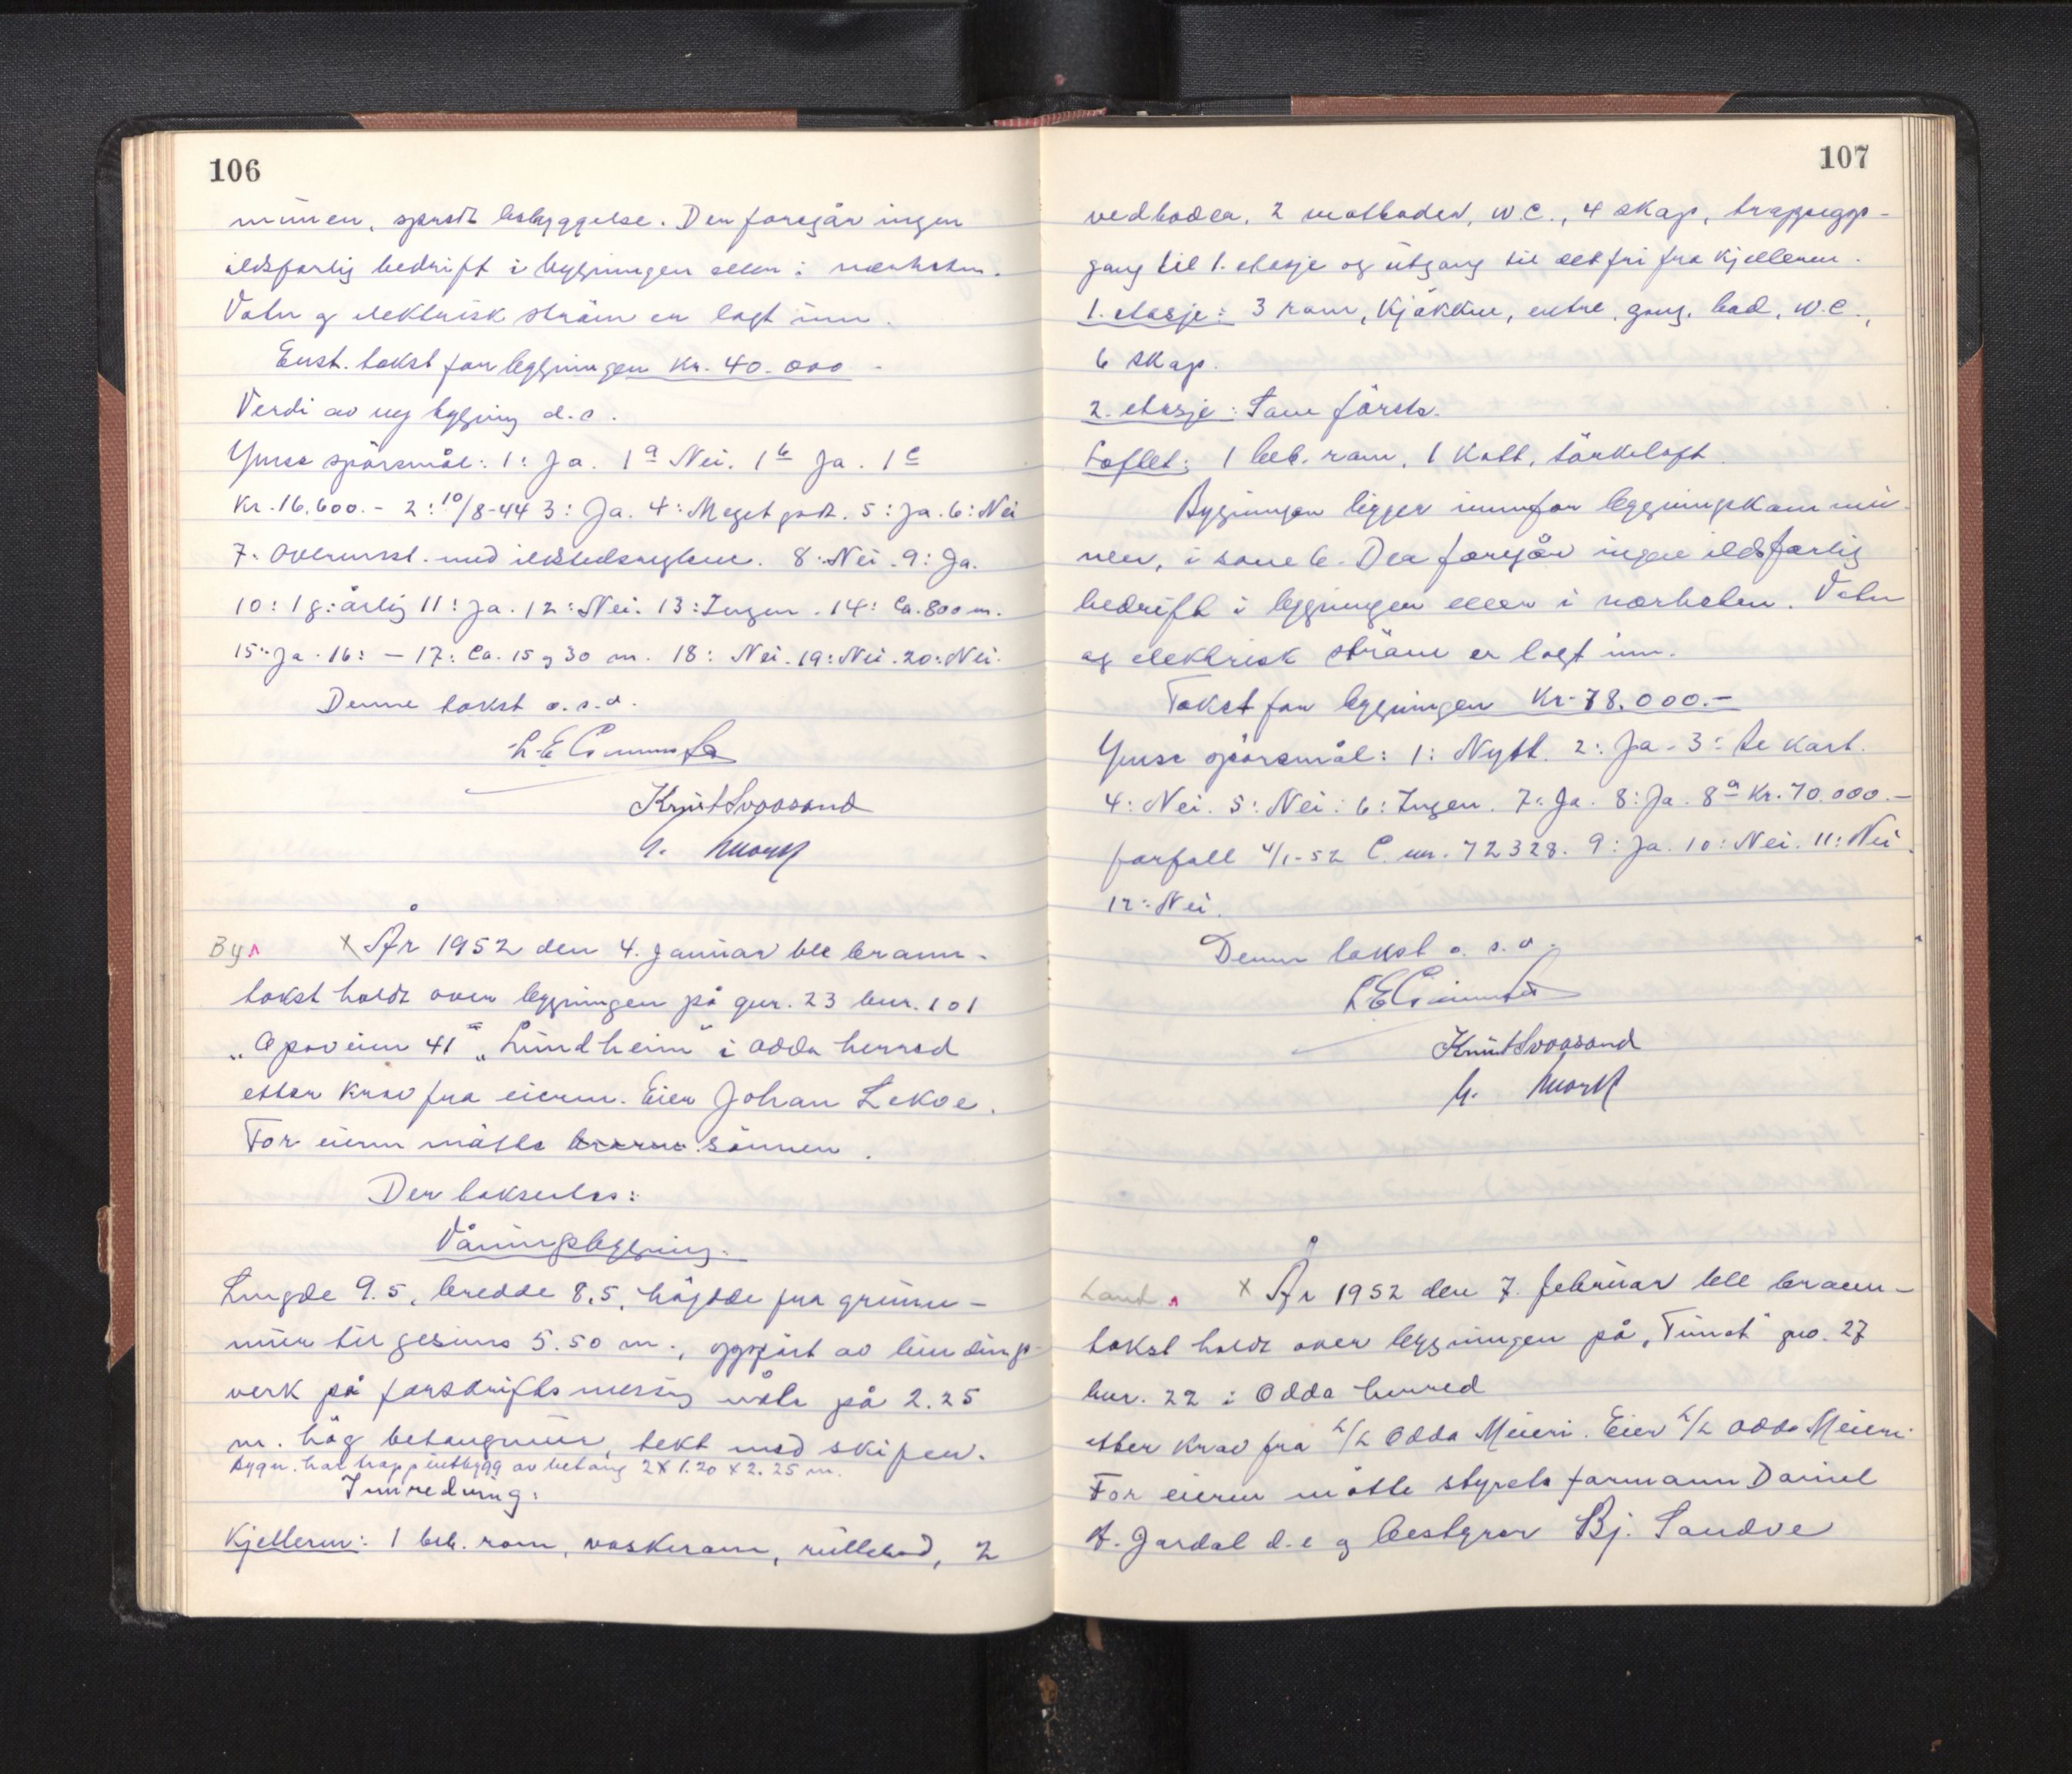 106
munen, spredt bebyggelse. Der foregår ingen
ildsfarlig bedrift i bygningen eller i nærheten.
Vatn og elektrisk strøm er lagt inn.
Enst. takst for bygningen Kr. 40.000 -
Verdi av ny bygning d.s.
Ymse spørsmål: 1: Ja. 1a Nei. 1b Ja. 1c
Kr. 16.600.- 2: 10/8-44 3: Ja. 4: Meget godt. 5: Ja. 6: Nei
7: Overensst. med ildstedsreglene. 8: Nei. 9: Ja.
10: 1 g. årlig 11: Ja. 12: Nei. 13: Ingen. 14: Ca. 800 m.
15: Ja. 16: - 17: Ca. 15 og 30 m. 18: Nei. 19: Nei. 20: Nei.
Denne takst o.s.v.
Knut Svaasand
By
x År 1952 den 4. januar ble brann-
takst holdt over bygningen på gnr. 23 bnr. 101
"Apoveien 41" "Lundheim" i Odda herred
etter krav fra eieren. Eier Johan Lekve.
For eieren møtte sønnen.
Der takseertes:
Våningsbygning.
Lengde 9.5, bredde 8.5, høgde fra grunn-
mur til gesims 5.50 m., oppført av bindings-
verk på forskriftsmessig måte på 2.25
m. høg betongmur, tekt med skifer.
Bygn. har trappeutbygg av betong 2 x 1.20 x 2.25 m.
Innredning:
Kjelleren: 1 beb. rom, vaskerom, rullebod, 2
107
vedboder, 2 matboder, W.C., 4 skap, trappeopp-
gang til 1. etasje og utgang til det fri fra kjelleren.
1. etasje: 3 rom, kjøkken, entre, gang, bad, W.C.,
6 skap.
2. etasje: Som første.
Loftet: 1 beb. rom, 1 kott, tørkeloft.
Bygningen ligger innenfor bygningskommu-
nen, i sone b. Der foregår ingen ildsfarlig
bedrift i bygningen eller i nærheten. Vatn
og elektrisk strøm er lagt inn.
Takst for bygningen Kr. 78.000.-
Ymse spørsmål: 1: Nytt. 2: Ja. 3: Se kart.
4: Nei. 5: Nei. 6: Ingen. 7: Ja. 8: Ja. 8a Kr. 70.000.-
forfall 4/1-52 C. nr. 72328. 9: Ja. 10: Nei. 11: Nei.
12: Nei.
Denne takst o.s.v.
Knut Svaasand
Land
x År 1952 den 7. februar ble brann-
takst holdt over bygningen på "Tunet" gno. 27
bnr. 22 i Odda herred
etter krav fra L/L Odda Meieri. Eier L/L Odda Meieri.
For eieren møtte styrets formann Daniel
A. Jordal d.e og bestyrer Bj. Sandve